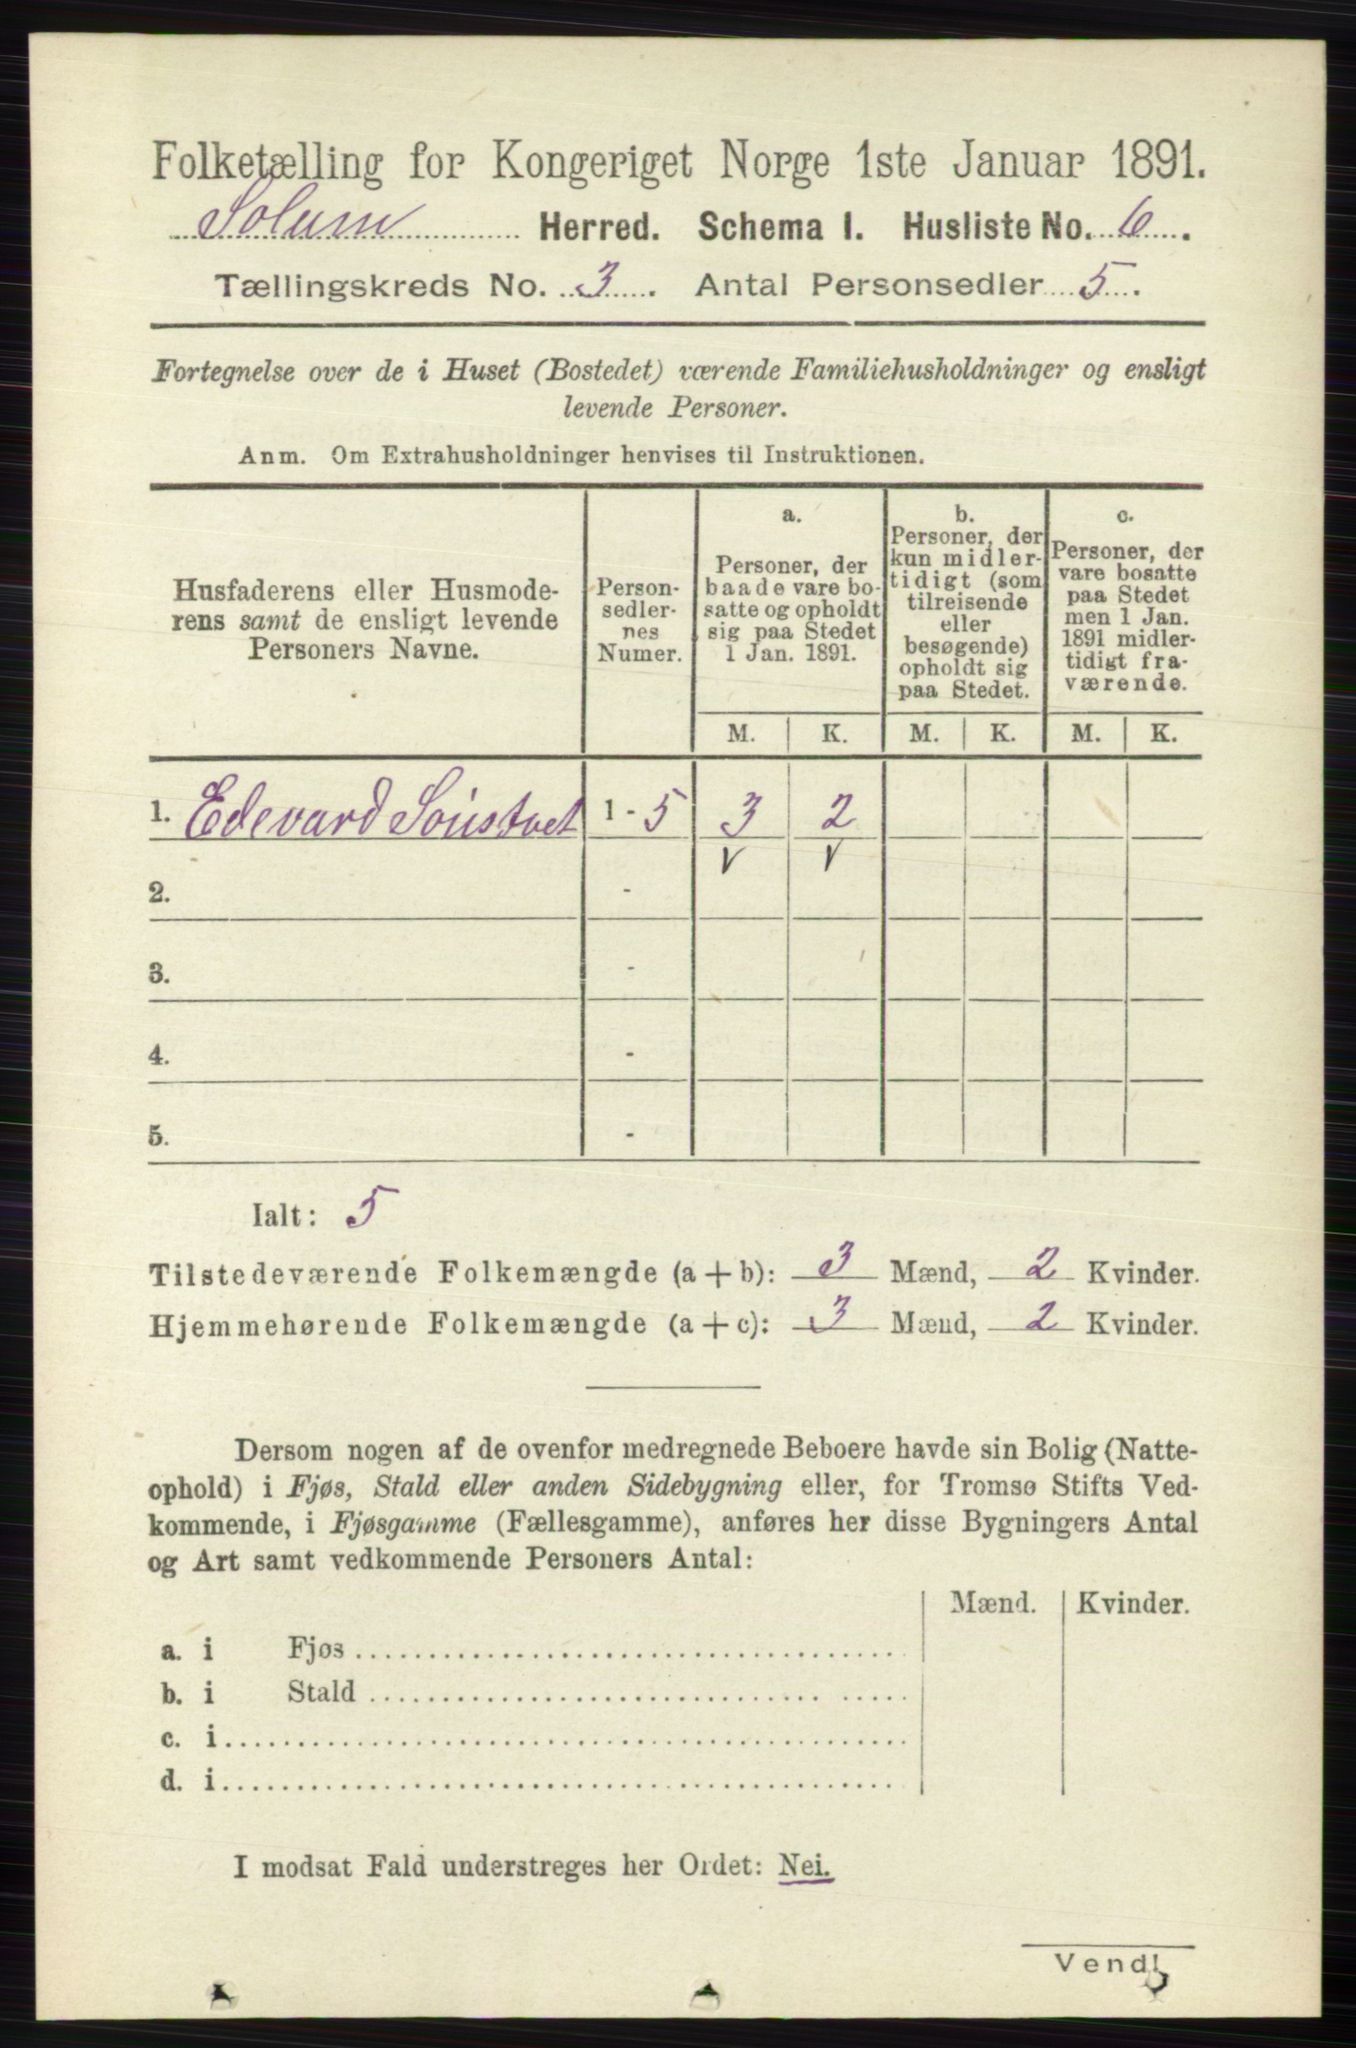 Folketælling for Kongeriget Norge 1ste Januar 1891.
Solum Herred. Schema I. Husliste No. 6.
Tællingskreds No. 3. Antal Personsedler 5.
Fortegnelse over de i Huset (Bostedet) værende Familiehusholdninger og ensligt
levende Personer.
Anm. Om Extrahusholdninger henvises til Instruktionen.
Husfaderens eller Husmode-
rens samt de ensligt levende
Personers Navne.
Person-
sedler-
nes
Numer.
a.
Personer, der
baade vare bo-
satte og opholdt
sig paa Stedet
1 Jan. 1891.
b.
Personer, der
kun midler-
tidigt (som
tilreisende
eller
besøgende)
opholdt sig
paa Stedet.
c.
Personer, der
vare bosatte
paa Stedet
men 1 Jan.
1891 midler-
tidigt fra-
værende.
M. K. M. K. M. K.
1. Edevard 1 - 5 3 2
v v
2. -
3. -
4. -
5. -
Ialt: 5
Tilstedeværende Folkemængde (a + b): 3 Mænd, 2 Kvinder.
Hjemmehørende Folkemængde (a + c): 3 Mænd, 2 Kvinder.
Dersom nogen af de ovenfor medregnede Beboere havde sin Bolig (Natte-
ophold) i Fjøs, Stald eller anden Sidebygning eller, for Tromsø Stifts Ved-
kommende, i Fjøsgamme (Fællesgamme), anføres her disse Bygningers Antal
og Art samt vedkommende Personers Antal:
Mænd. Kvinder.
a. i Fjøs
b. i Stald
c. i
d. i
I modsat Fald understreges her Ordet: Nei.
Vend!